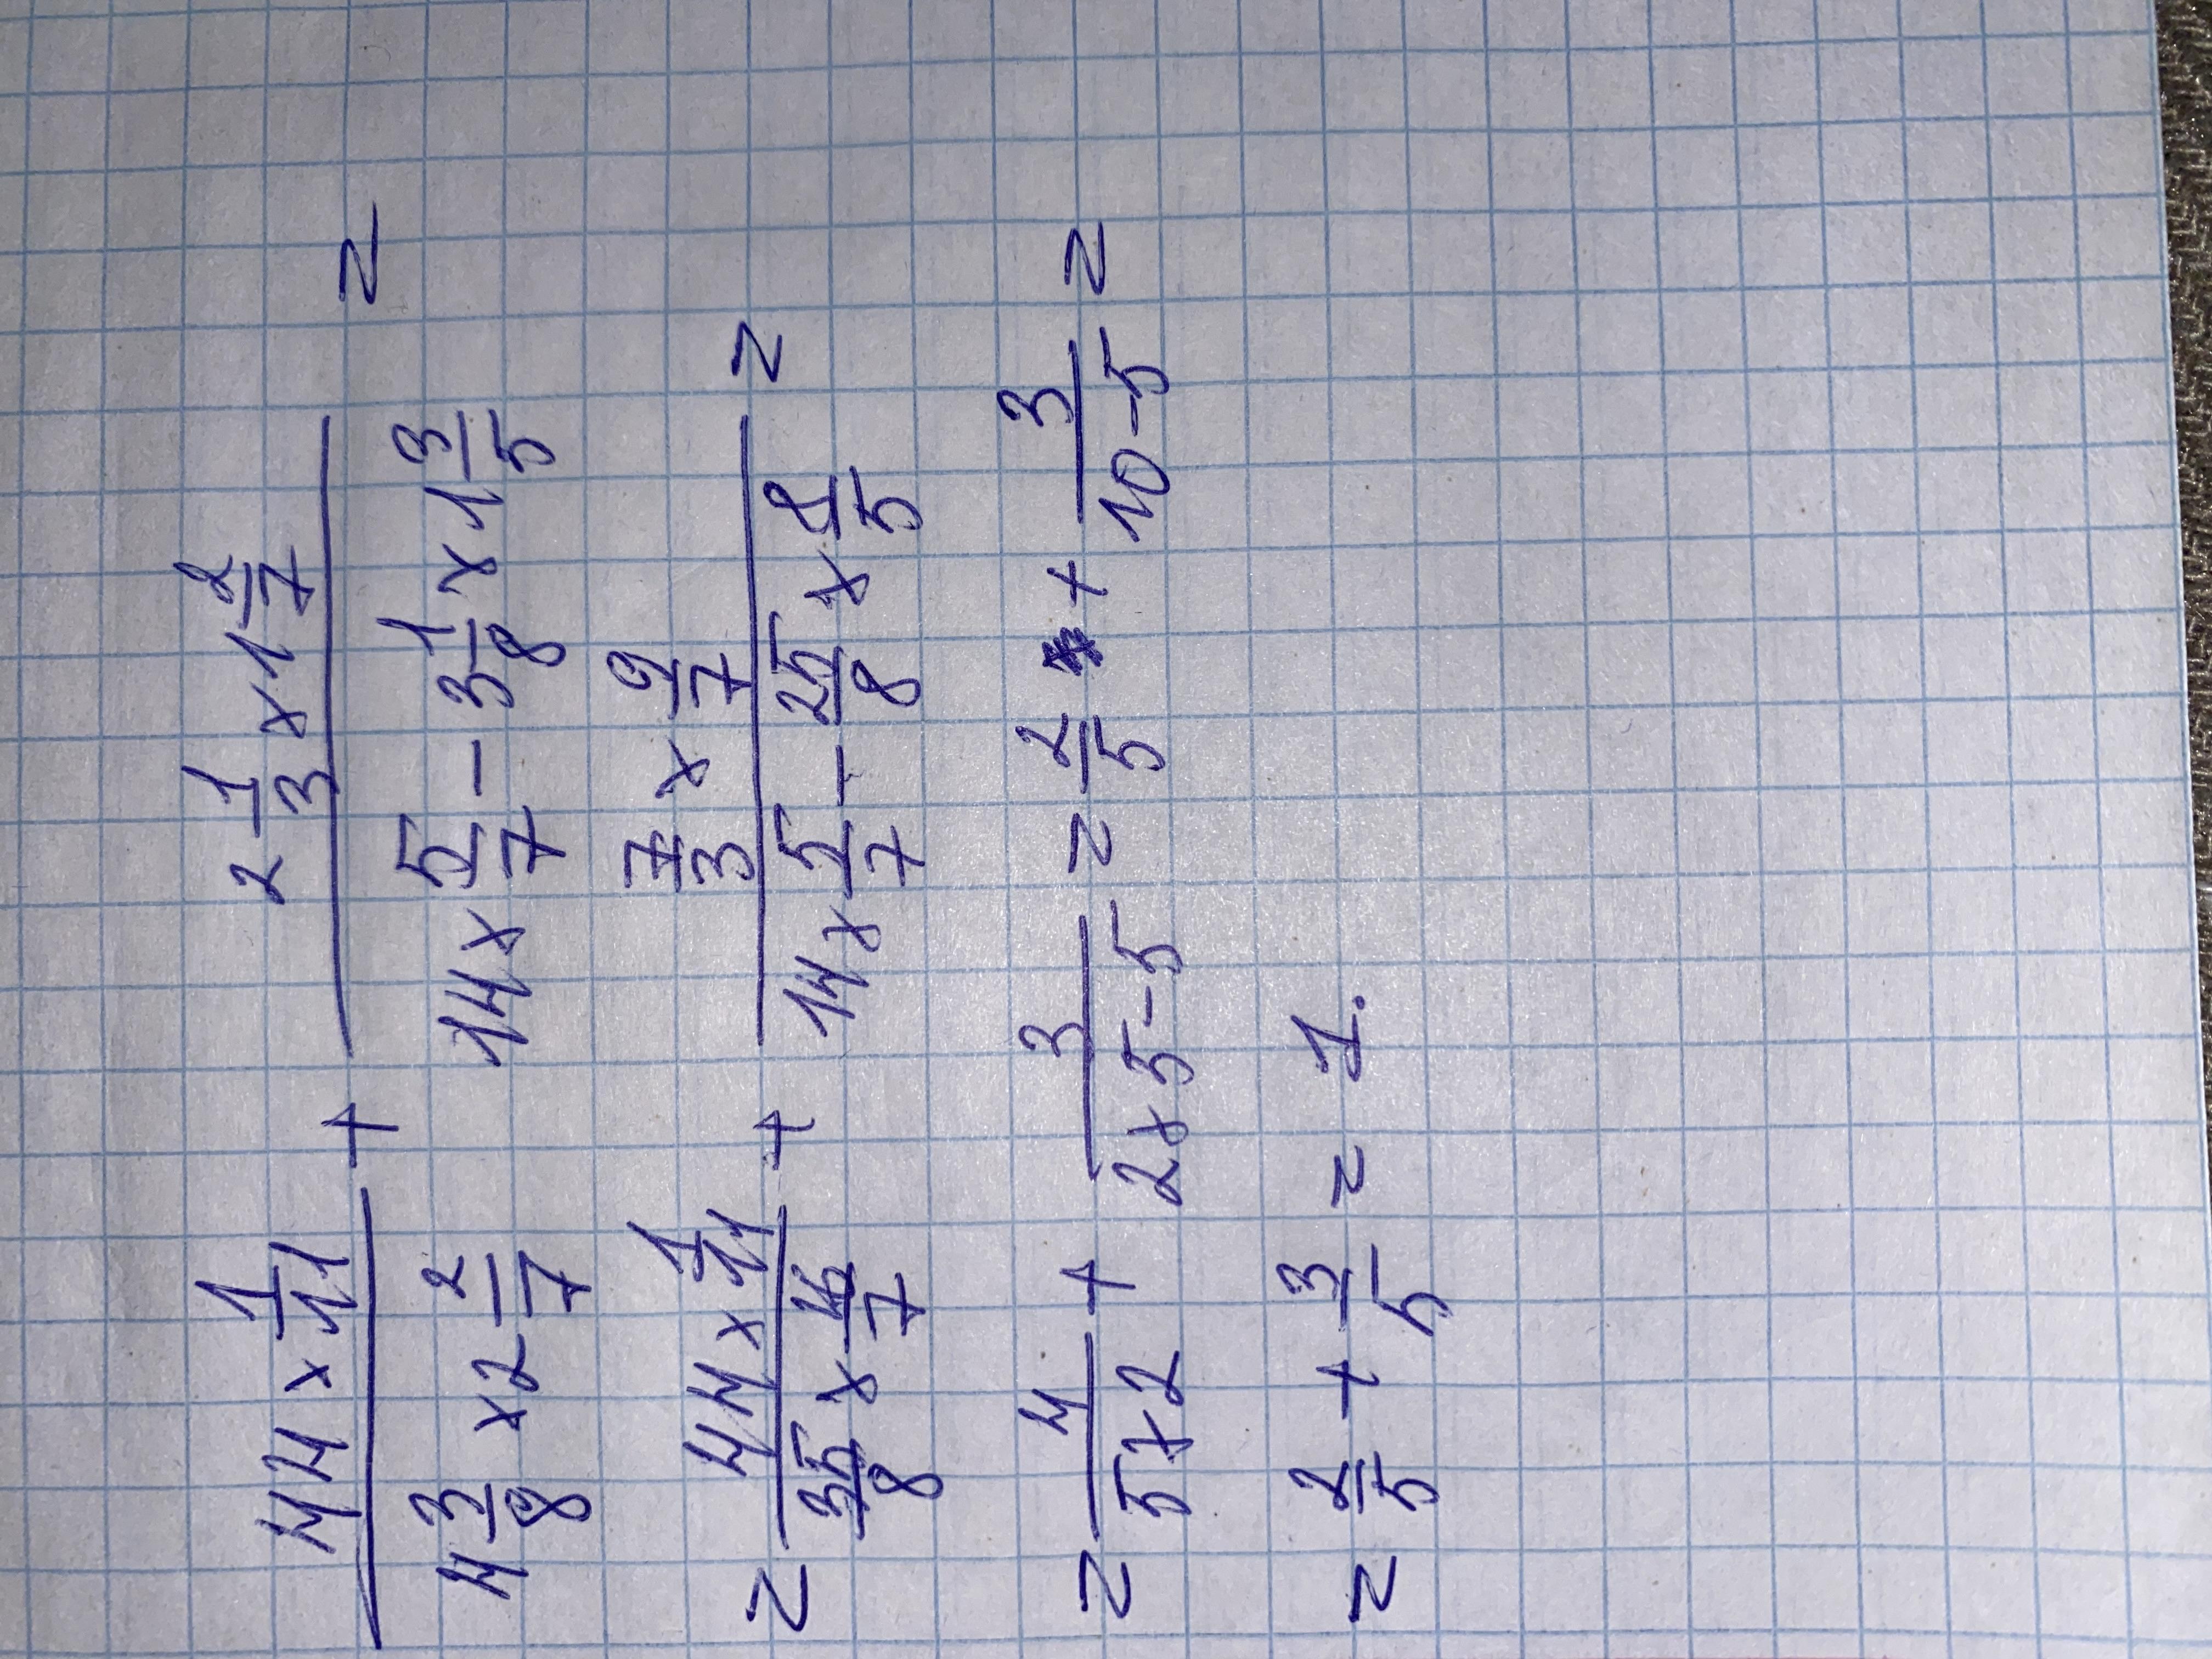 (44 × 1/11)/(4 3/8 × 2 2/7) + (2 1/3 × 1 2/7)/(14 × 5/7 − 3 1/8 × 1 3/5) =
= (44 × 1/11)/(35/8 × 16/7) + (7/3 × 9/7)/(14 × 5/7 − 25/8 × 8/5) =
= 4/(5 × 2) + 3/(2 × 5 − 5) = 2/5 + 3/(10 − 5) =
= 2/5 + 3/5 = 1.